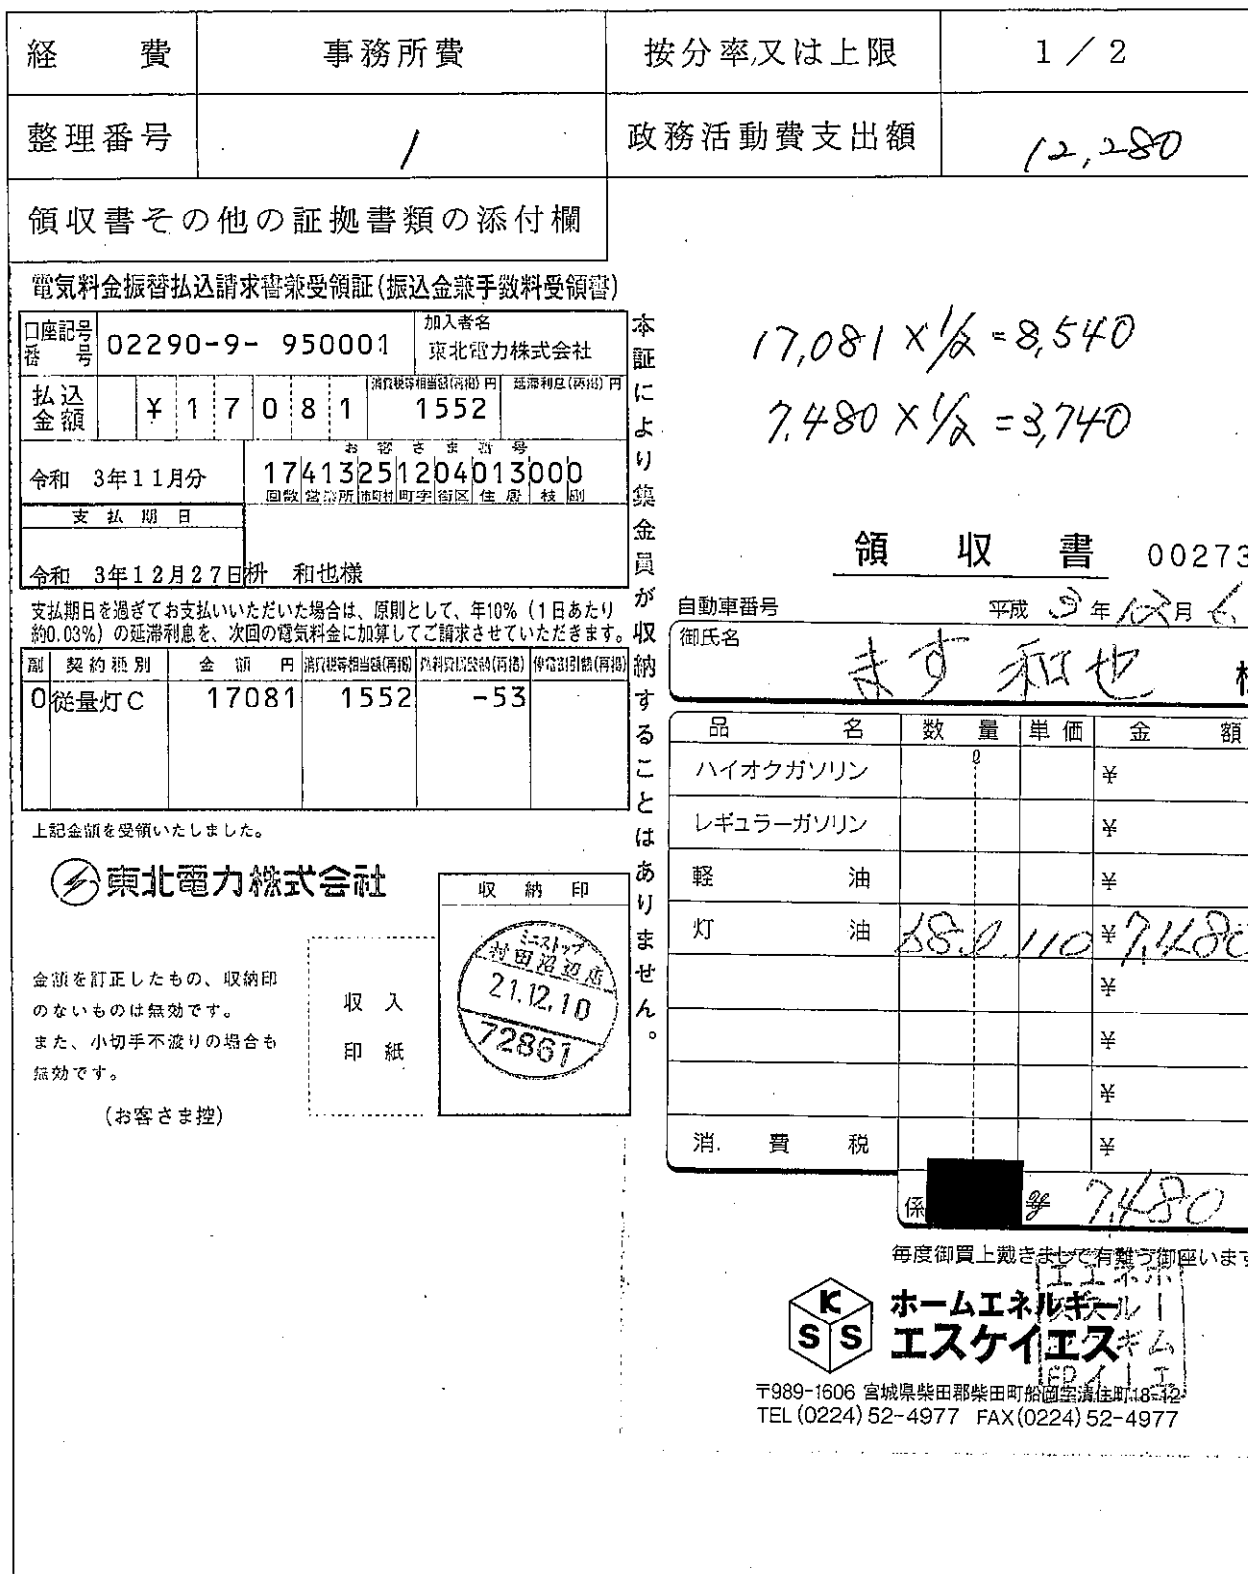 経費 事務所費 按分率又は上限 1／2
整理番号 1 政務活動費支出額 12,280
領収書その他の証拠書類の添付欄
電気料金振替払込請求書兼受領証(振込金兼手数料受領書)
口座記号番号 02290-9- 950001 加入者名 東北電力株式会社
払込金額 ¥17081 消費税等相当額(再掲)円 1552 延滞利息(再掲)円
お客さま番号
令和 3年11月分 17413251204013000
回数 営業所 市町村 町字 街区 住居 枝 副
支払期日
令和 3年12月27日 枡 和也様
支払期日を過ぎてお支払いいただいた場合は、原則として、年10%（1日あたり
約0.03%）の延滞利息を、次回の電気料金に加算してご請求させていただきます。
副 契約種別 金額 円 消費税等相当額(再掲) 燃料費調整額(再掲) 停電割引額(再掲)
0 従量灯C 17081 1552 -53
上記金額を受領いたしました。
東北電力株式会社
収納印
ミニストップ
村田沼辺店
21.12.10
72861
金額を訂正したもの、収納印
のないものは無効です。
また、小切手不渡りの場合も
無効です。
(お客さま控)
収入
印紙
本証により集金員が収納することはありません。
17,081×1/2=8,540
7,480×1/2=3,740
領収書 00273
自動車番号 平成 3年12月6
御氏名
ます 和也 様
品名 数量 単価 金額
ハイオクガソリン ℓ ¥
レギュラーガソリン ¥
軽油 ¥
灯油 68.0 110 ¥7,480
¥
¥
¥
消費税 ¥
係 7,480
毎度御買上戴きまして有難う御座います
KSS
ホームエネルギー
エスケイエス
〒989-1606 宮城県柴田郡柴田町船岡字清住町18-12
TEL(0224)52-4977 FAX(0224)52-4977